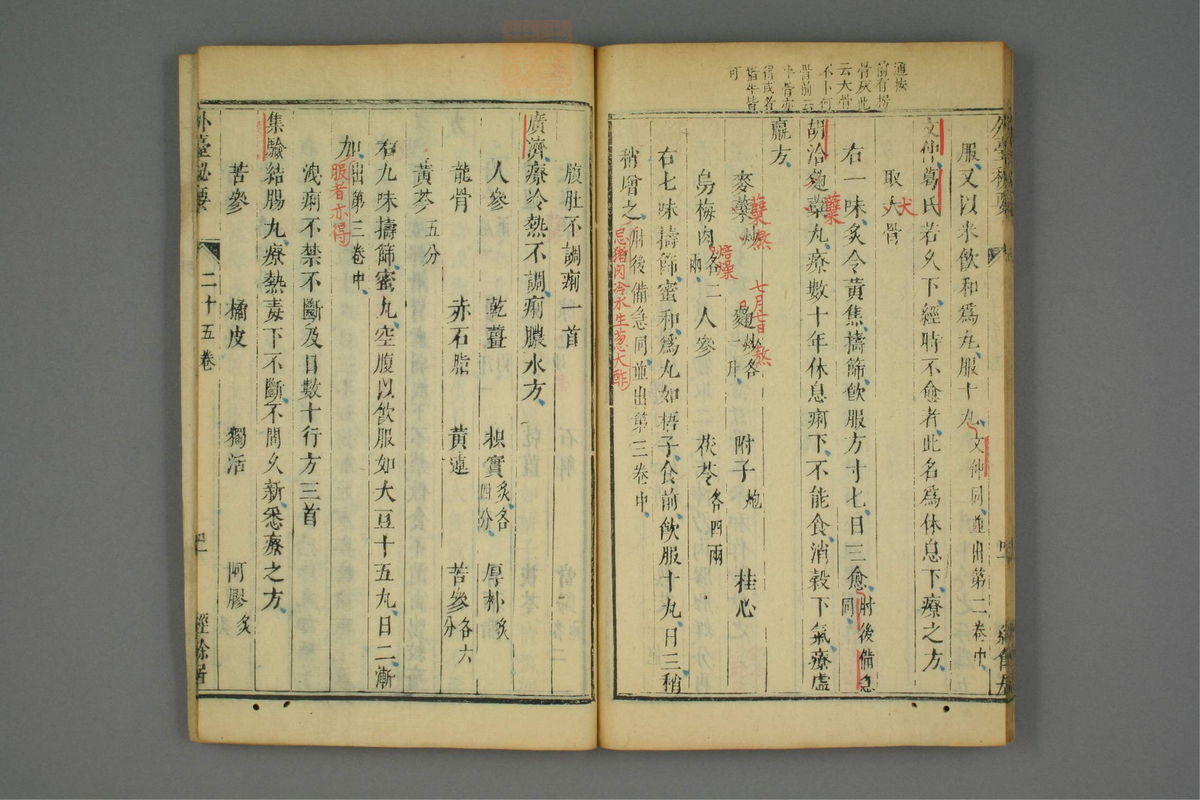 通按
前有撈
骨灰此
云大骨
不卜何
骨前云
牛骨亦
得或各
可
服又以米飲和為丸服十丸文仲同並出第二卷中
文仲葛氏若久下經時不愈者此名為休息下療之方
取犬骨
右一味炙令黃焦擣篩飲服方寸匕日三愈肘後備急同
胡洽麴蘗丸療數十年休息痢下不能食消穀下氣療虛
羸方
麥蘗炒 麴炒各一升 附子炮 桂心
蘗熬
七月七日熬
烏梅肉各二兩 人參 茯苓各四兩
焙燥
右七味擣篩蜜和為丸如梧子食前飲服十丸日三稍
稍增之肘後備急同並出第三卷中
忌豬肉冷水生蔥大酢
腹肚不調痢一首
廣濟療冷熱不調痢膿水方
人參 乾薑 枳實炙各四分 厚朴炙
龍骨 赤石脂 黃連 苦參各六分
黃芩五分
右九味擣篩蜜丸空腹以飲服如大豆十五丸日二漸
加出第三卷中
服者亦得
洩痢不禁不斷及日數十行方三首
集驗結腸丸療熱毒下不斷不問久新悉療之方
苦參 橘皮 獨活 阿膠炙
外臺秘要
二十五卷
經餘居